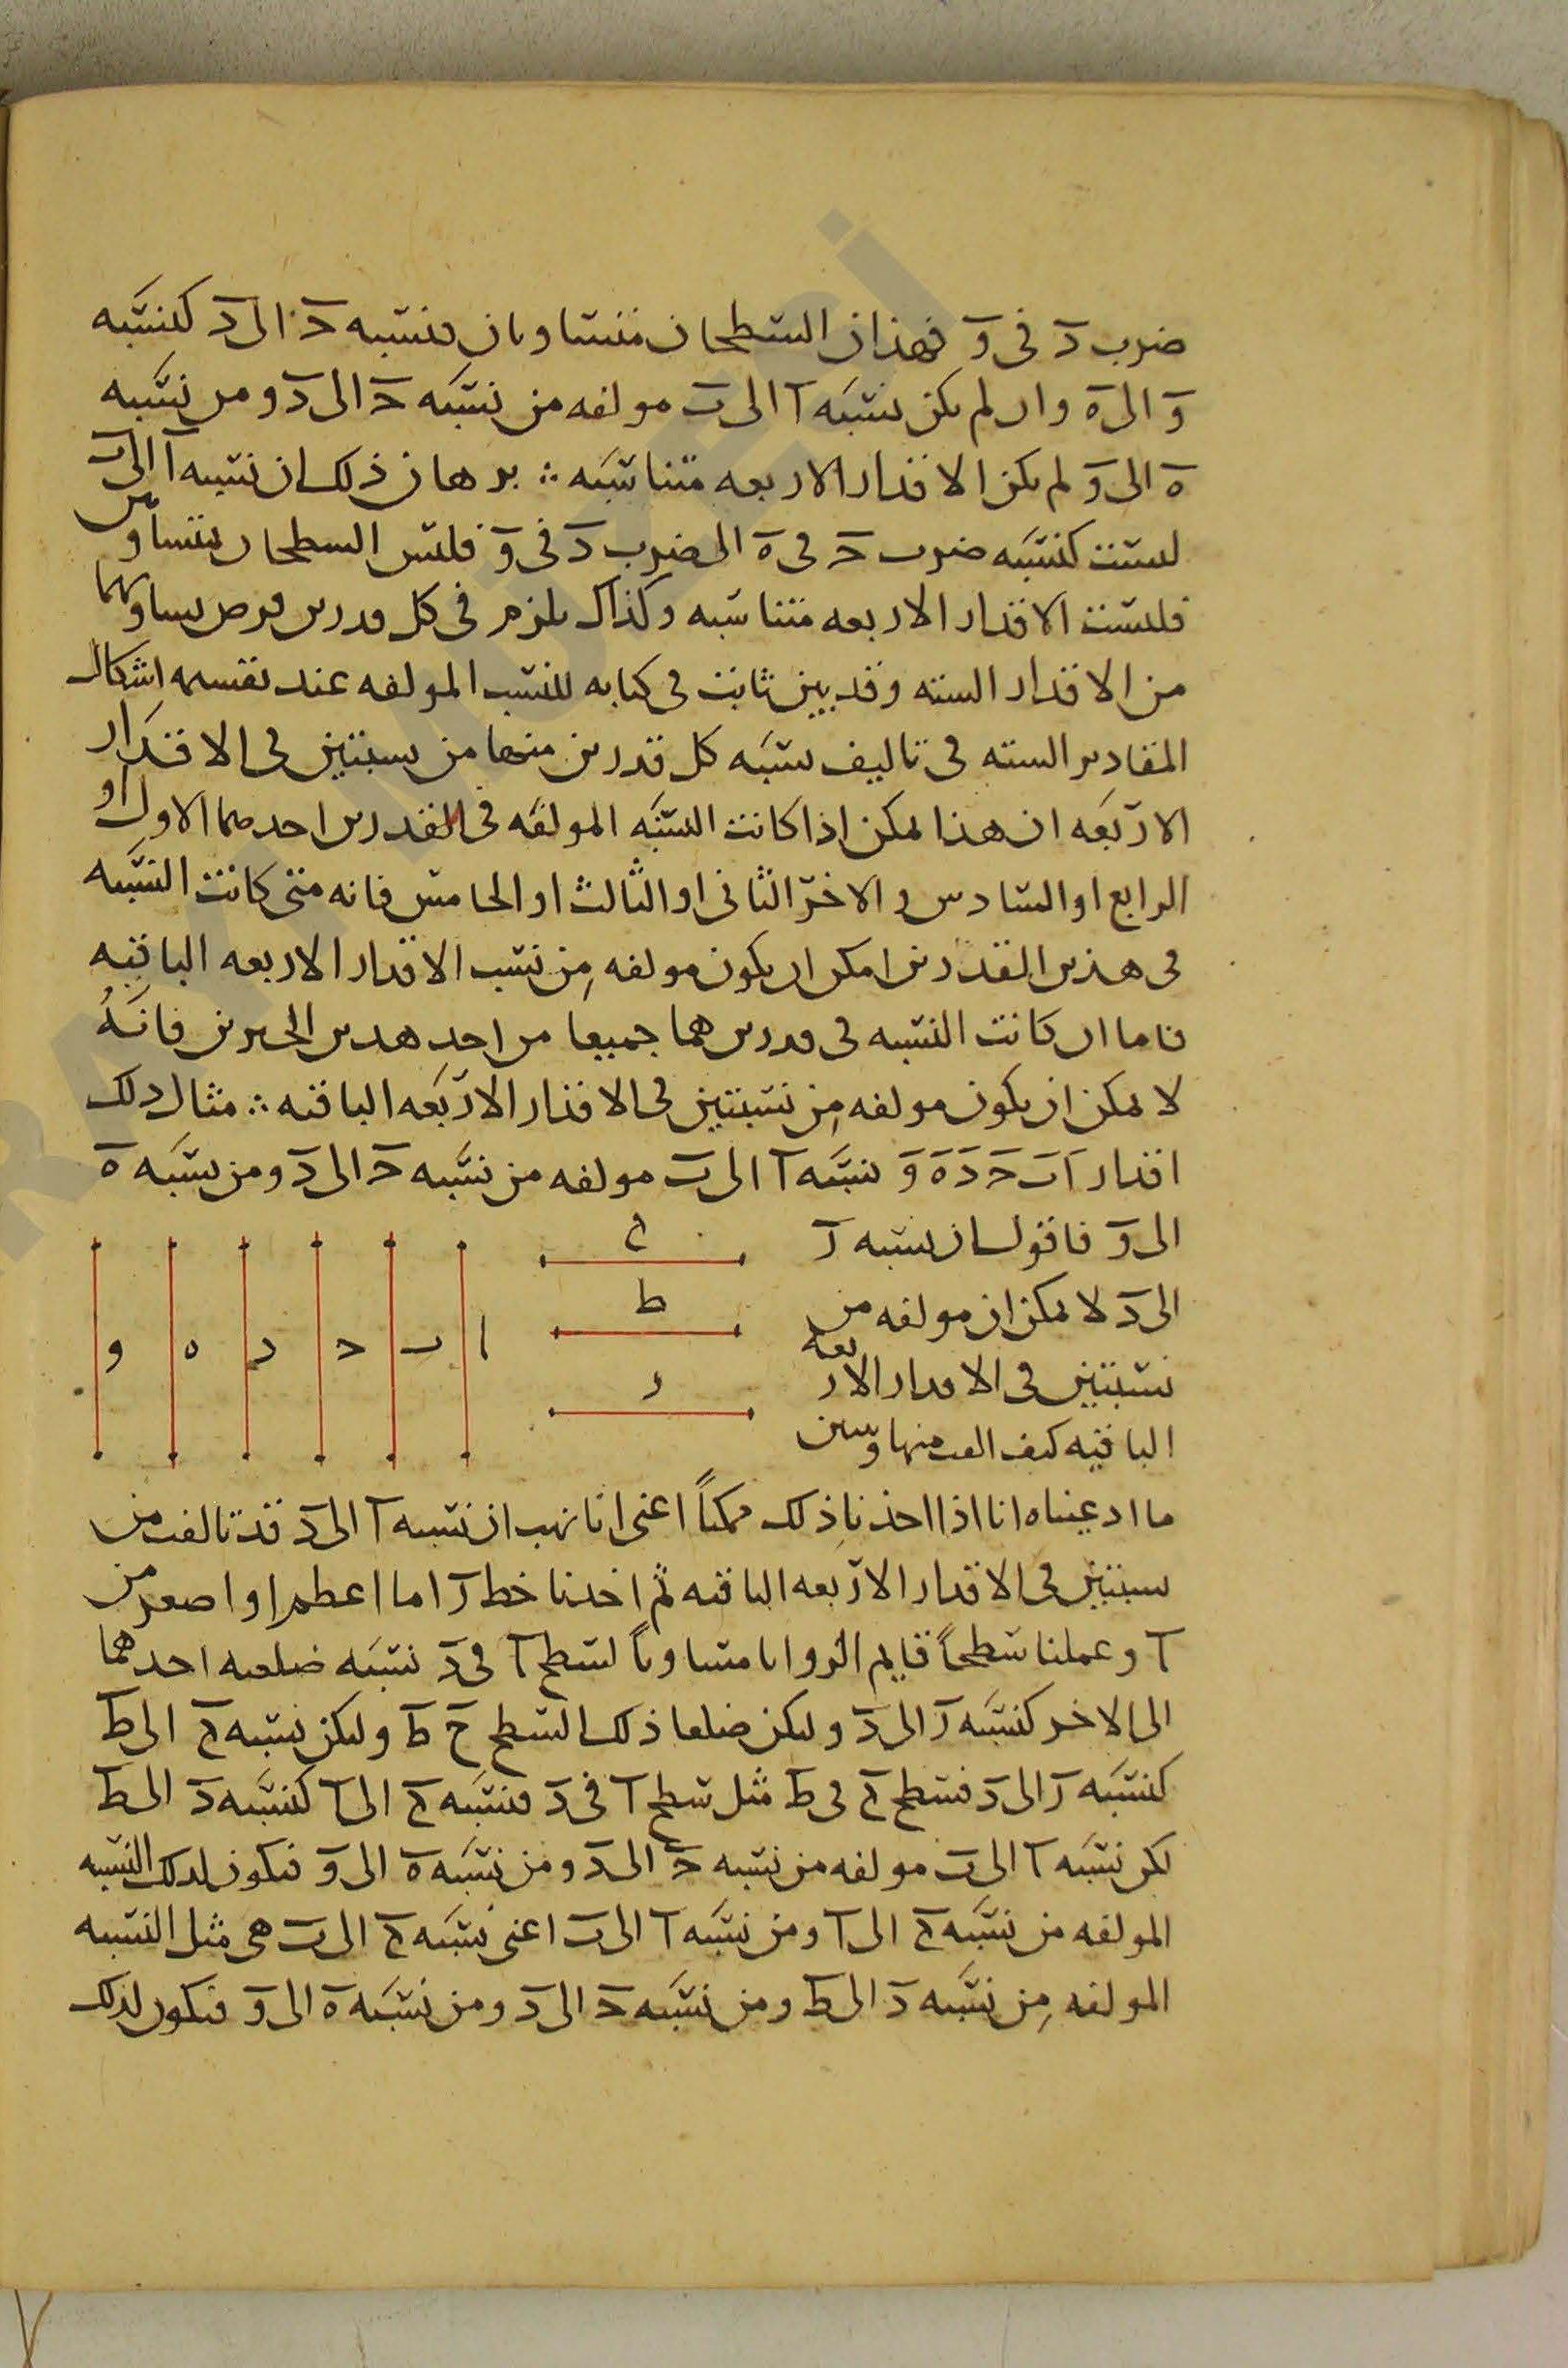 ضرب د فى و فهذان السطحان متساويان فنسبه ح الى د كنسبه
و الى ه وان لم يكن نسبه ا الى ب مولفه من نسبه ح الى د ومن نسبه
ه الى و لم يكن الاقدار الاربعه متناسبه ∴ برهان ذلك ان نسبه ا الى ب
ليست كنسبه ضرب ح فى ه الى ضرب د فى و فليس السطحان بمتساويين
فليست الاقدار الاربعه متناسبه وكذلك يلزم فى كل قدرين فرض تساويهما
من الاقدار السته وقد بين ثابت فى كتابه للنسب المولفه عند تقسيمه اشكال
المقادير السته فى تاليف نسبه كل قدرين منها من نسبتين فى الاقدار
الاربعه ان هذا يمكن اذا كانت النسبه المولفه فى القدرين احدهما الاول او
الرابع او السادس والاخر الثانى او الثالث او الخامس فانه متى كانت النسبه
فى هذين القدرين امكن ان يكون مولفه من نسب الاقدار الاربعه الباقيه
فاما ان كانت النسبه فى قدرين هما جميعا من احد هذين الحيزين فانه
لا يمكن ان يكون مولفه من نسبتين فى الاقدار الاربعه الباقيه ∴ مثال ذلك
اقدار ا ب ح د ه و نسبه ا الى ب مولفه من نسبه ح الى د ومن نسبه ه
الى و فاقول ان نسبه ا
الى د لا يمكن ان مولفه من
نسبتين فى الاقدار الاربعه
الباقيه كيف الفت منها وتبين
ح
ط
ر
ا ب ح د ه و
ما ادعيناه انا اذا اخذنا ذلك ممكناً اعنى انا نهب ان نسبه ا الى د قد تالفت من
نسبتين فى الاقدار الاربعه الباقيه ثم اخذنا خط ر اما اعظم او اصغر من
ا وعملنا سطحاً قايم الزوايا متساوياً لسطح ا فى د نسبه ضلعيه احدهما
الى الاخر كنسبه ر الى د وليكن ضلعا ذلك السطح ح ط وليكن نسبه ح الى ط
كنسبه ر الى د فسطح ح فى ط مثل سطح ا فى د فنسبه ح الى ا كنسبه د الى ط
لكن نسبه ا الى ب مولفه من نسبه ح الى د ومن نسبه ه الى و فيكون لذلك النسبه
المولفه من نسبه ح الى ا ومن نسبه ا الى ب اعنى نسبه ح الى ب هى مثل النسبه
المولفه من نسبه د الى ط ومن نسبه ح الى د ومن نسبه ه الى و فيكون لذلك